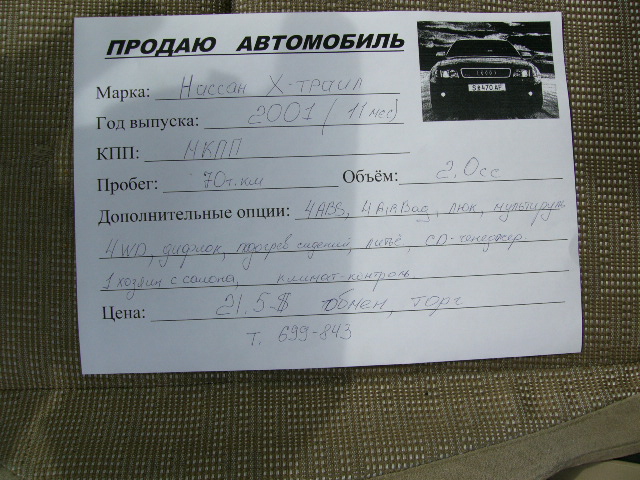 ПРОДАЮ АВТОМОБИЛЬ
Марка: Ниссан Х-траил
Год выпуска: 2001 (11 мес)
КПП: МКПП
Пробег: 70т.км Объём: 2.0сс
Дополнительные опции: 4ABS, 4AirBag, люк, мультируль
4WD, дифлок, подогрев сидений, литьё, CD-ченджер.
1 хозяин с салона, климат-контроль
Цена: 21.5$ обмен, торг
т. 699-843